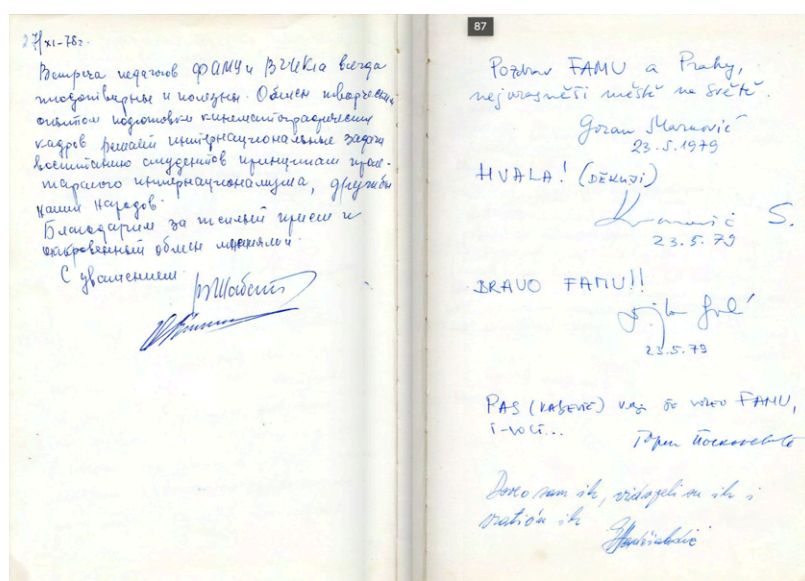 27/XI-78г.
Встреча педагогов ФАМУ и ВГИКа всегда
плодотворны и полезны. Обмен творческим
опытом подготовки кинематографических
кадров решает интернациональные задачи
воспитанию студентов принципам проле-
тарского интернационализма, дружбы
наших народов.
Благодарим за теплый прием и
откровенный обмен мнениями.
С уважением
87
Pozdrav FAMU a Prahy,
nejkrasněští městě na Světě.
Goran Marković
23.5.1979
HVALA! (DĚKUJI)
S.
23.5.79
BRAVO FAMU!!
23.5.79
PAS (KAŽEVIĆ) koji je voleo FAMU,
i-voli...
Doveo sam ih, vidojeli su ih i
vratiću ih